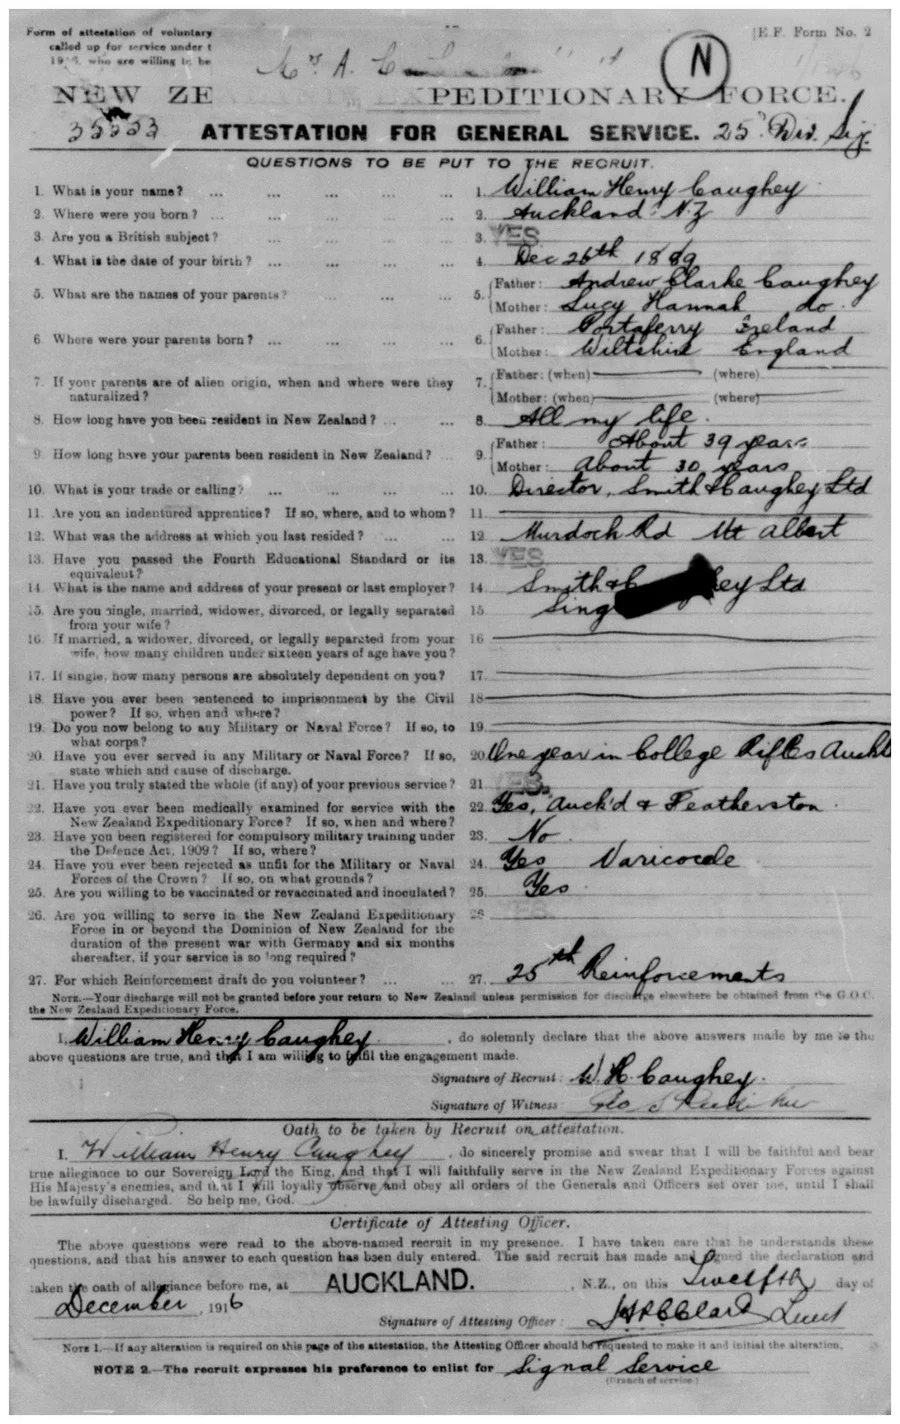 Form of attestation of voluntary
called up for service under t
who are willing to be
E.F. Form No. 2
Mrs A. C.
N
NEW ZEALAND EXPEDITIONARY FORCE.
35553 ATTESTATION FOR GENERAL SERVICE. 25th Div. Sig.
QUESTIONS TO BE PUT TO THE RECRUIT.
1. What is your name? ... ... ... ... 1. William Henry Caughey
2. Where were you born? ... ... ... ... 2. Auckland N.Z
3. Are you a British subject? ... ... ... 3. YES
4. What is the date of your birth? ... ... ... 4. Dec 26th 1889
5. What are the names of your parents? ... ... ... 5. Father: Andrew Clarke Caughey
Mother: Lucy Hannah do.
6. Where were your parents born? ... ... ... 6. Father: Portaferry Ireland
Mother: Wiltshire England
7. If your parents are of alien origin, when and where were they 7. Father: (when) (where)
naturalized? Mother: (when) (where)
8. How long have you been resident in New Zealand? ... ... 8. All my life.
9. How long have your parents been resident in New Zealand? ... 9. Father: About 39 years
Mother: About 30 years
10. What is your trade or calling? ... ... ... ... 10. Director, Smith & Caughey Ltd
11. Are you an indentured apprentice? If so, where, and to whom? 11.
12. What was the address at which you last resided? ... ... 12. Murdoch Rd Mt Albert
13. Have you passed the Fourth Educational Standard or its 13. YES
equivalent?
14. What is the name and address of your present or last employer? 14. Smith & C hey Ltd
15. Are you single, married, widower, divorced, or legally separated 15. Sing
from your wife?
16. If married, a widower, divorced, or legally separated from your 16.
wife, how many children under sixteen years of age have you?
17. If single, how many persons are absolutely dependent on you? 17.
18. Have you ever been sentenced to imprisonment by the Civil 18.
power? If so, when and where?
19. Do you now belong to any Military or Naval Force? If so, to 19.
what corps?
20. Have you ever served in any Military or Naval Force? If so, 20. One year in College Rifles Auckl
state which and cause of discharge.
21. Have you truly stated the whole (if any) of your previous service? 21. YES.
22. Have you ever been medically examined for service with the 22. Yes, Auck'd & Featherston.
New Zealand Expeditionary Force? If so, when and where?
23. Have you been registered for compulsory military training under 23. No
the Defence Act, 1909? If so, where?
24. Have you ever been rejected as unfit for the Military or Naval 24. Yes Varicocele
Forces of the Crown? If so, on what grounds?
25. Are you willing to be vaccinated or revaccinated and inoculated? 25. Yes
26. Are you willing to serve in the New Zealand Expeditionary 26. YES.
Force in or beyond the Dominion of New Zealand for the
duration of the present war with Germany and six months
thereafter, if your service is so long required?
27. For which Reinforcement draft do you volunteer? ... ... 27. 25th Reinforcements
NOTE.—Your discharge will not be granted before your return to New Zealand unless permission for discharge elsewhere be obtained from the G.O.C.
the New Zealand Expeditionary Force.
I, William Henry Caughey, do solemnly declare that the above answers made by me to the
above questions are true, and that I am willing to fulfil the engagement made.
Signature of Recruit: W. H. Caughey.
Signature of Witness: Geo S
Oath to be taken by Recruit on attestation.
I, William Henry Caughey, do sincerely promise and swear that I will be faithful and bear
true allegiance to our Sovereign Lord the King, and that I will faithfully serve in the New Zealand Expeditionary Forces against
His Majesty's enemies, and that I will loyally observe and obey all orders of the Generals and Officers set over me, until I shall
be lawfully discharged. So help me, God.
Certificate of Attesting Officer.
The above questions were read to the above-named recruit in my presence. I have taken care that he understands these
questions, and that his answer to each question has been duly entered. The said recruit has made and signed the declaration and
taken the oath of allegiance before me, at AUCKLAND. , N.Z., on this Twelfth day of
December, 1916
Signature of Attesting Officer: Clark Lieut
NOTE 1.—If any alteration is required on this page of the attestation, the Attesting Officer should be requested to make it and initial the alteration.
NOTE 2.—The recruit expresses his preference to enlist for Signal Service
(Branch of service.)